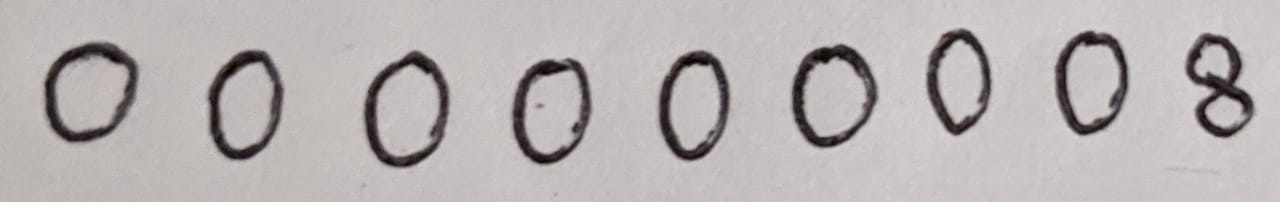 0 0 0 0 0 0 0 0 8